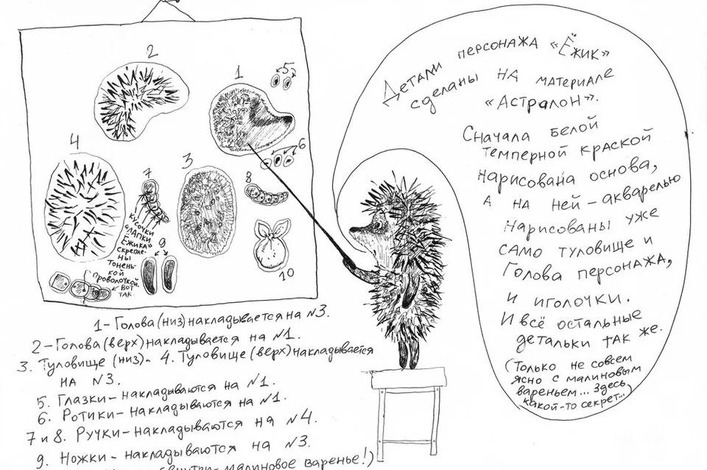 2
1
5
6
4
7
3
8
9
10
Кусочки
лапки
Ёжика
скрепле-
ны
тонень-
кой
проволочкой.
вот
так
Детали персонажа «Ёжик»
сделаны на материале
«Астралон».
Сначала белой
темперной краской
нарисована основа,
а на ней – акварелью
нарисованы уже
само туловище и
голова персонажа,
и иголочки.
И всё остальные
детальки так же.
(Только не совсем
ясно с малиновым
вареньем... Здесь
какой-то секрет...)
1 – Голова (низ) накладывается на №3.
2 – Голова (верх) накладывается на №1.
3. Туловище (низ) – 4. Туловище (верх) накладывается
на №3.
5. Глазки – накладываются на №1.
6. Ротики – накладываются на №1.
7 и 8. Ручки – накладываются на №4.
9. Ножки – накладываются на №3.
малиновое варенье!)